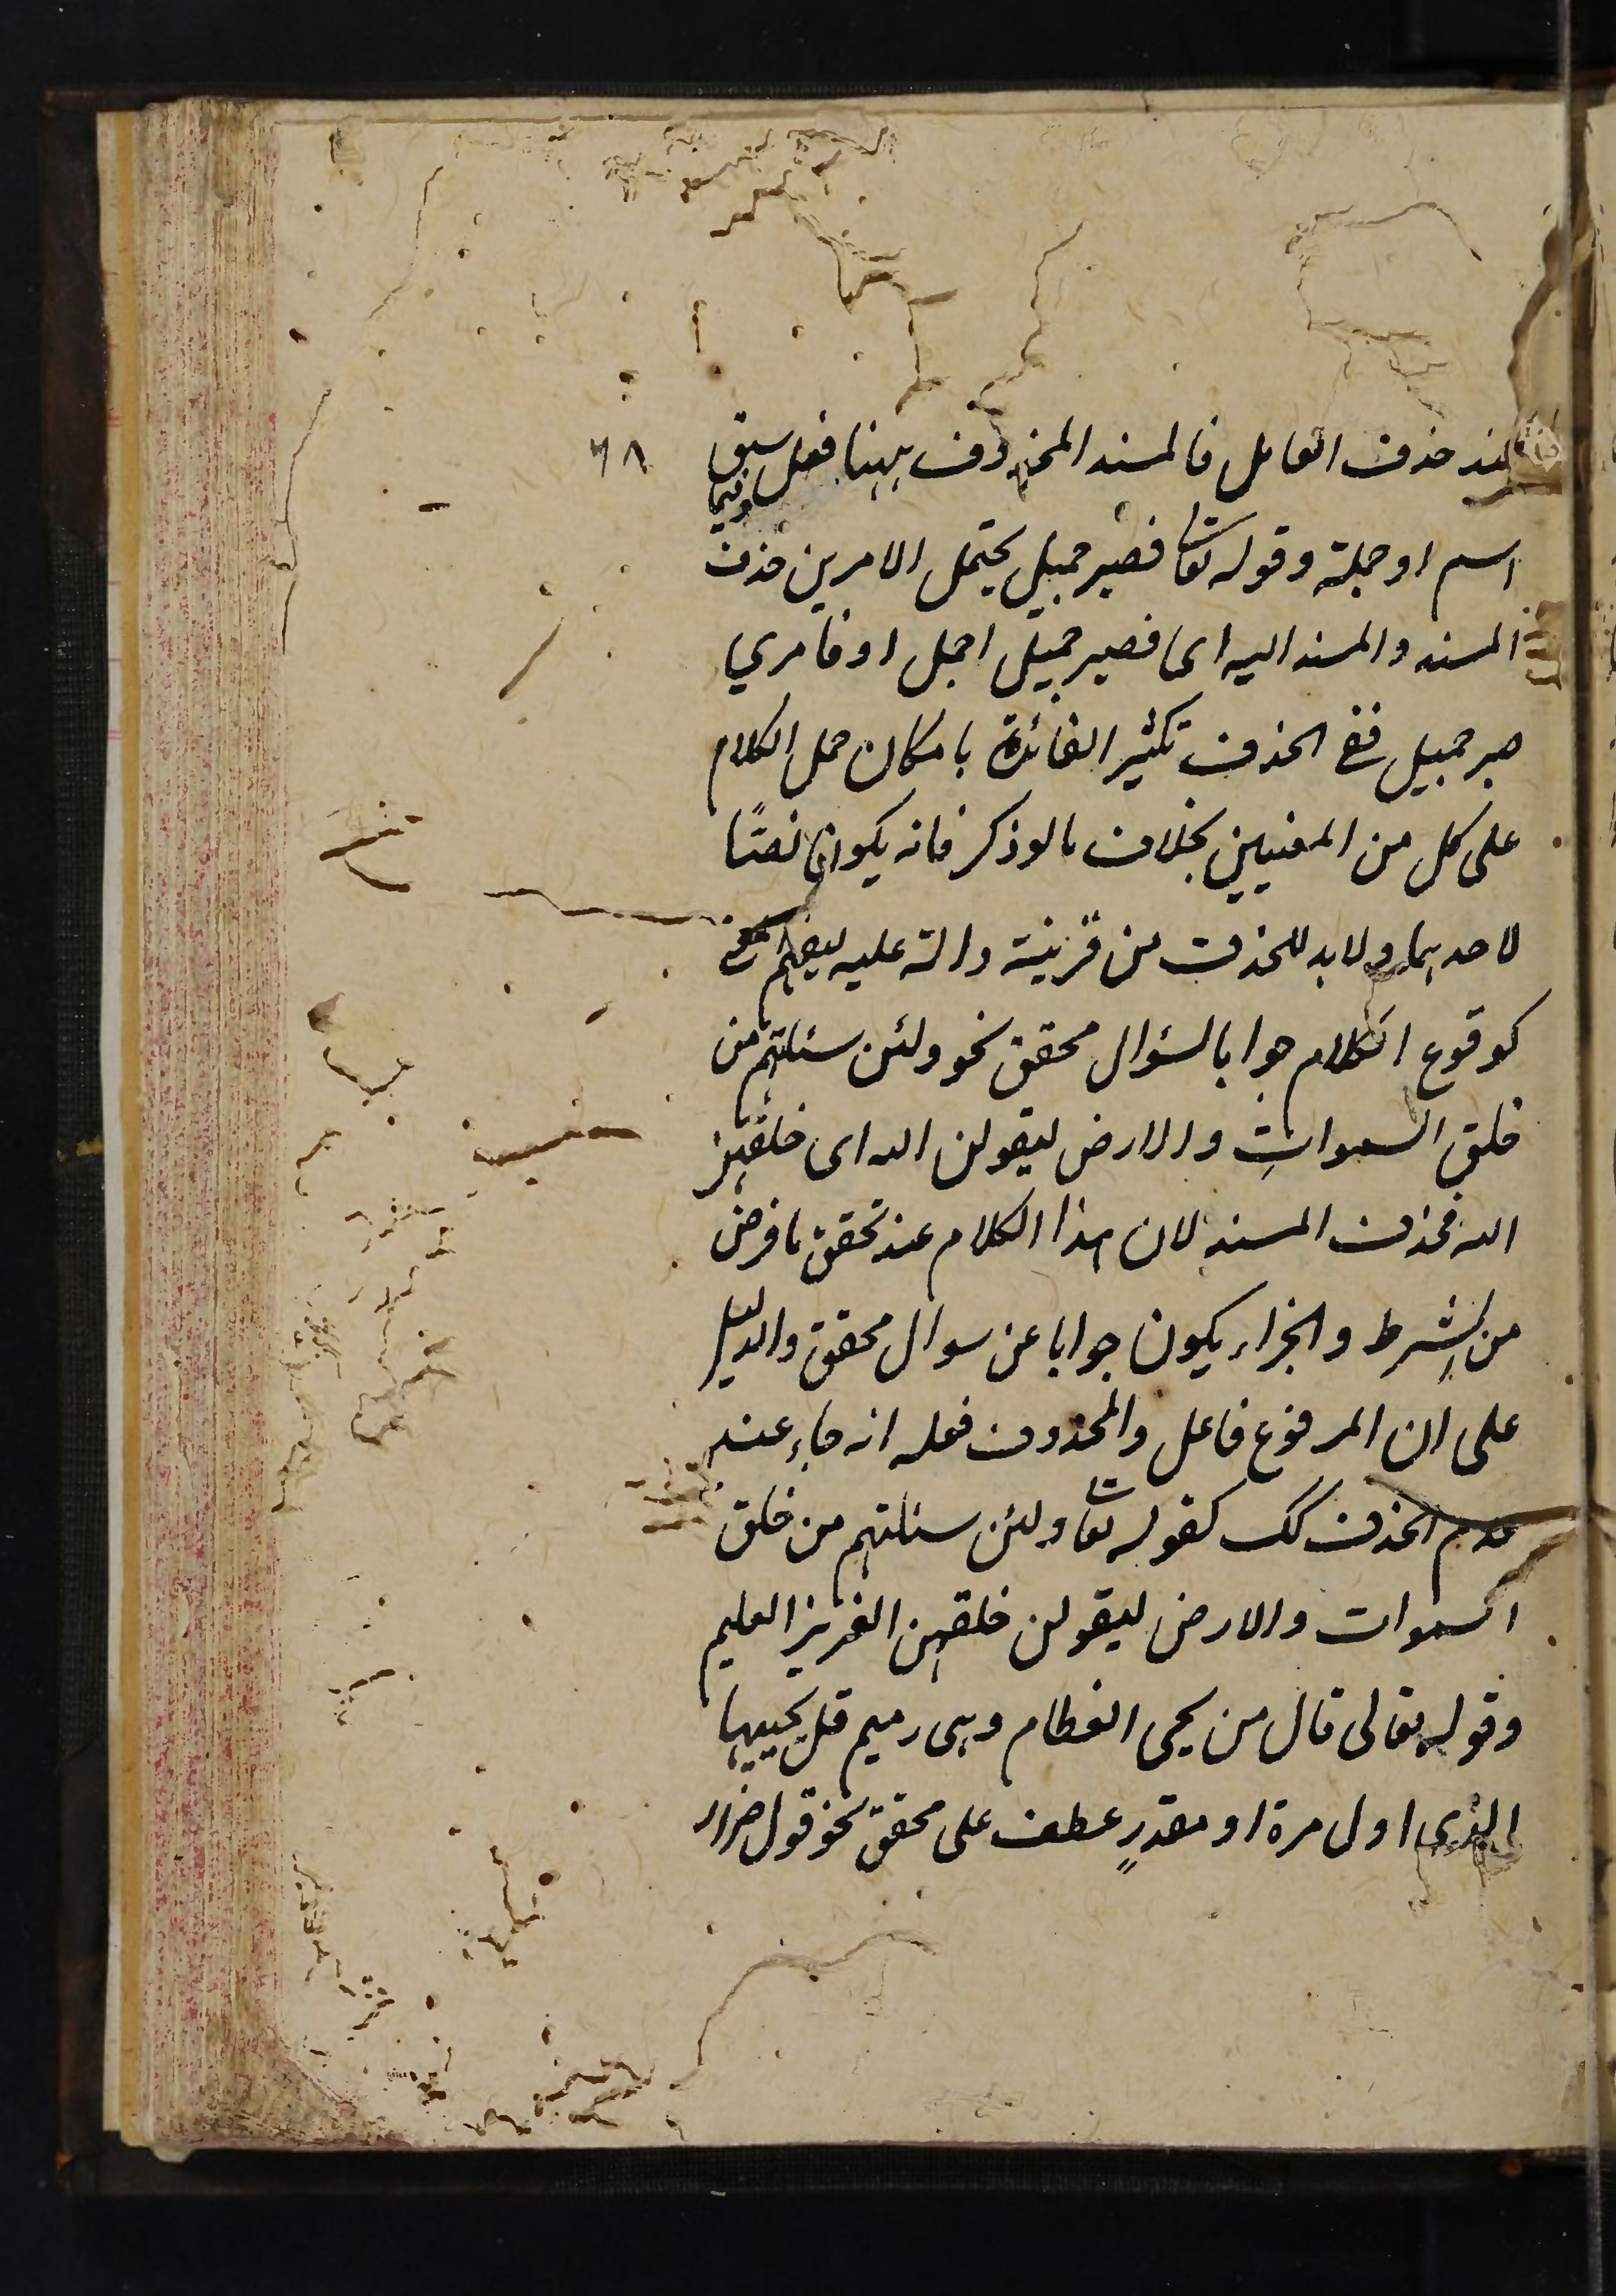 عند حذف العامل فالمسند المحذوف ههنا فعل وفيما سبق ٦٨
اسم او جملة وقوله تعا فصبر جميل يحتمل الامرين حذف
المسند والمسند اليه اى فصبر جميل اجمل او فامري
صبر جميل ففى الحذف تكثير الفائدة بامكان حمل الكلام
على كل من المعنيين بخلاف ما لو ذكر فانه يكون نصًّا
لاحدهما ولا بد للحذف من قرينة دالة عليه ليفهم
كوقوع الكلام جوابا لسؤال محقق نحو ولئن سئلتهم من
خلق السموات والارض ليقولن الله اى خلقهن
الله فحذف المسند لان هذا الكلام عند تحقق ما فرض
من الشرط والجزاء يكون جوابا عن سوال محقق والدليل
على ان المرفوع فاعل والمحذوف فعله انه جاء عند
عدم الحذف كك كقوله تعا ولئن سئلتهم من خلق
السموات والارض ليقولن خلقهن العزيز العليم
وقوله تعالى قال من يحيى العظام وهى رميم قل يحييها
الذى اول مرة او مقدرٍ عطف على محقق نحو قول ضرار